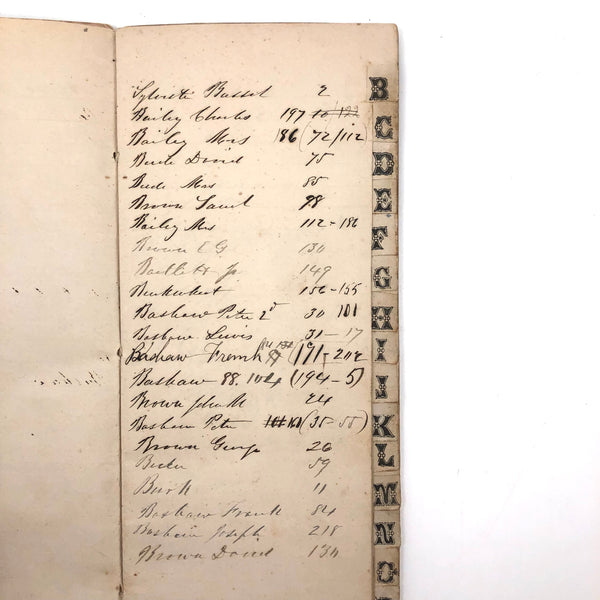 Sylvester Bassel 2
Bailey Charles 197
Bailey Mrs 186 (72/112)
David 75
Mrs 85
Brown Saml 98
Bailey Mrs 112-186
Brown E G 130
Bartlett Jr 149
156-155
Bashaw Peter 2d 30 101
Lewis 31-17
Bashaw Frank (191-202
Bashaw 88. 104 (194-5)
Brown John 24
Bashaw Peter (35-55)
Brown George 26
59
Burk 11
Bashaw Frank 84
Bashaw Joseph 218
Brown David 130
B
C
D
E
F
G
H
I
J
K
L
M
N
O